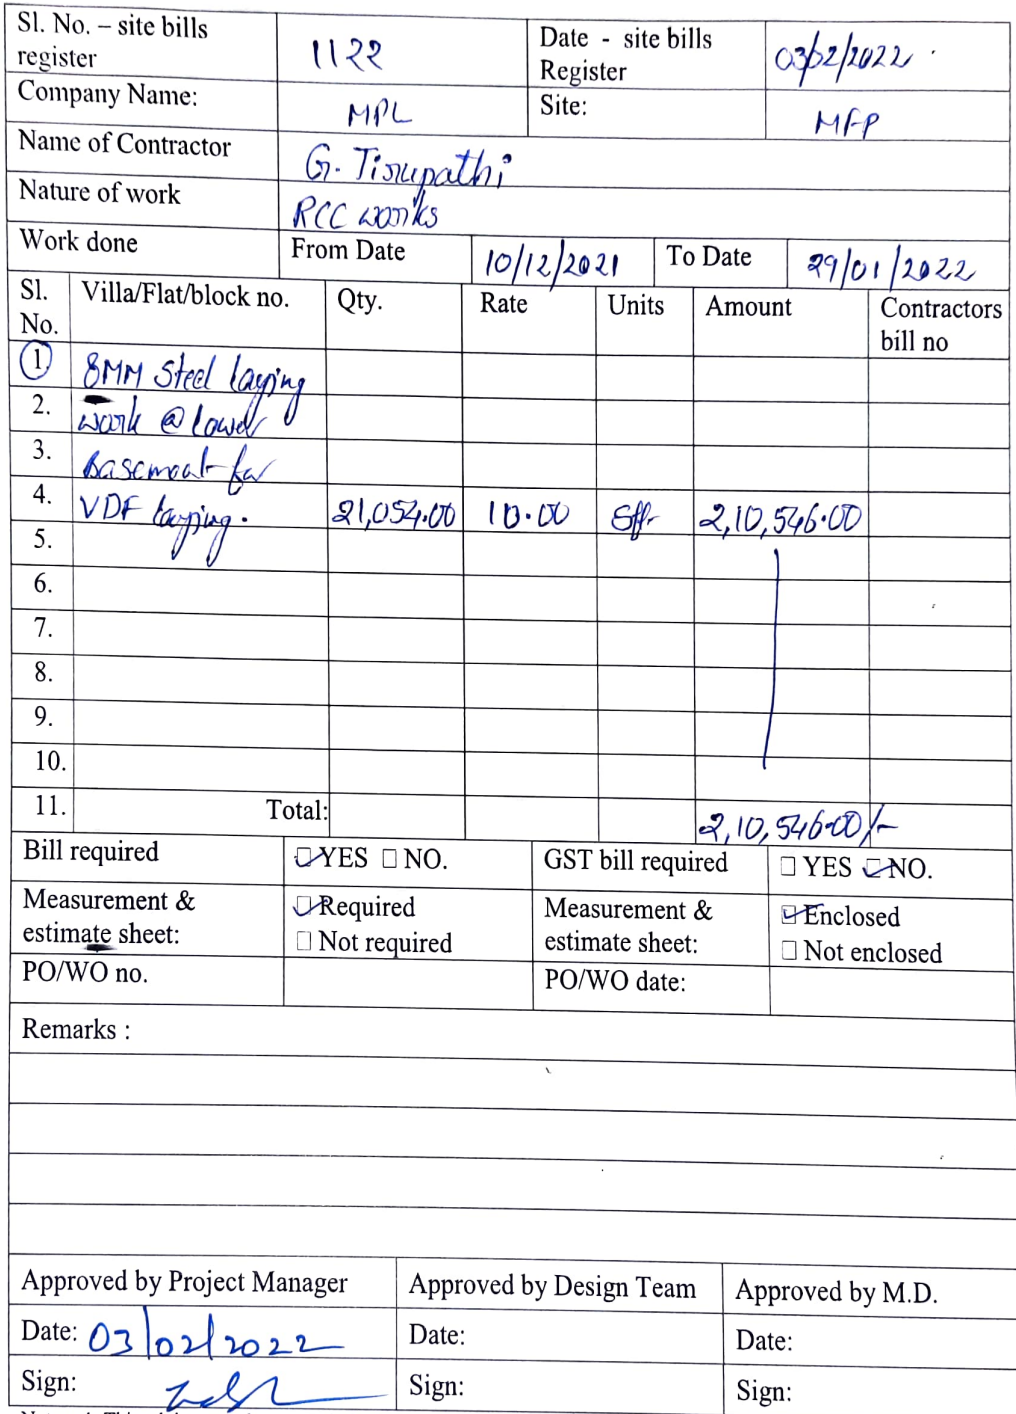 Sl. No. – site bills register 1122 Date - site bills Register 03/02/2022
Company Name: MPL Site: MFP
Name of Contractor G. Tirupathi
Nature of work RCC works
Work done From Date 10/12/2021 To Date 29/01/2022
Sl. No. Villa/Flat/block no. Qty. Rate Units Amount Contractors bill no
1. 8MM Steel laying
2. work @ lower
3. Basement for
4. VDF laying. 21,054.00 10.00 Sft. 2,10,546.00
5.
6.
7.
8.
9.
10.
11. Total: 2,10,546.00/-
Bill required ☑ YES ☐ NO. GST bill required ☐ YES ☑ NO.
Measurement & estimate sheet: ☑ Required ☐ Not required Measurement & estimate sheet: ☑ Enclosed ☐ Not enclosed
PO/WO no. PO/WO date:
Remarks :
Approved by Project Manager Approved by Design Team Approved by M.D.
Date: 03/02/2022 Date: Date:
Sign: Sign: Sign: